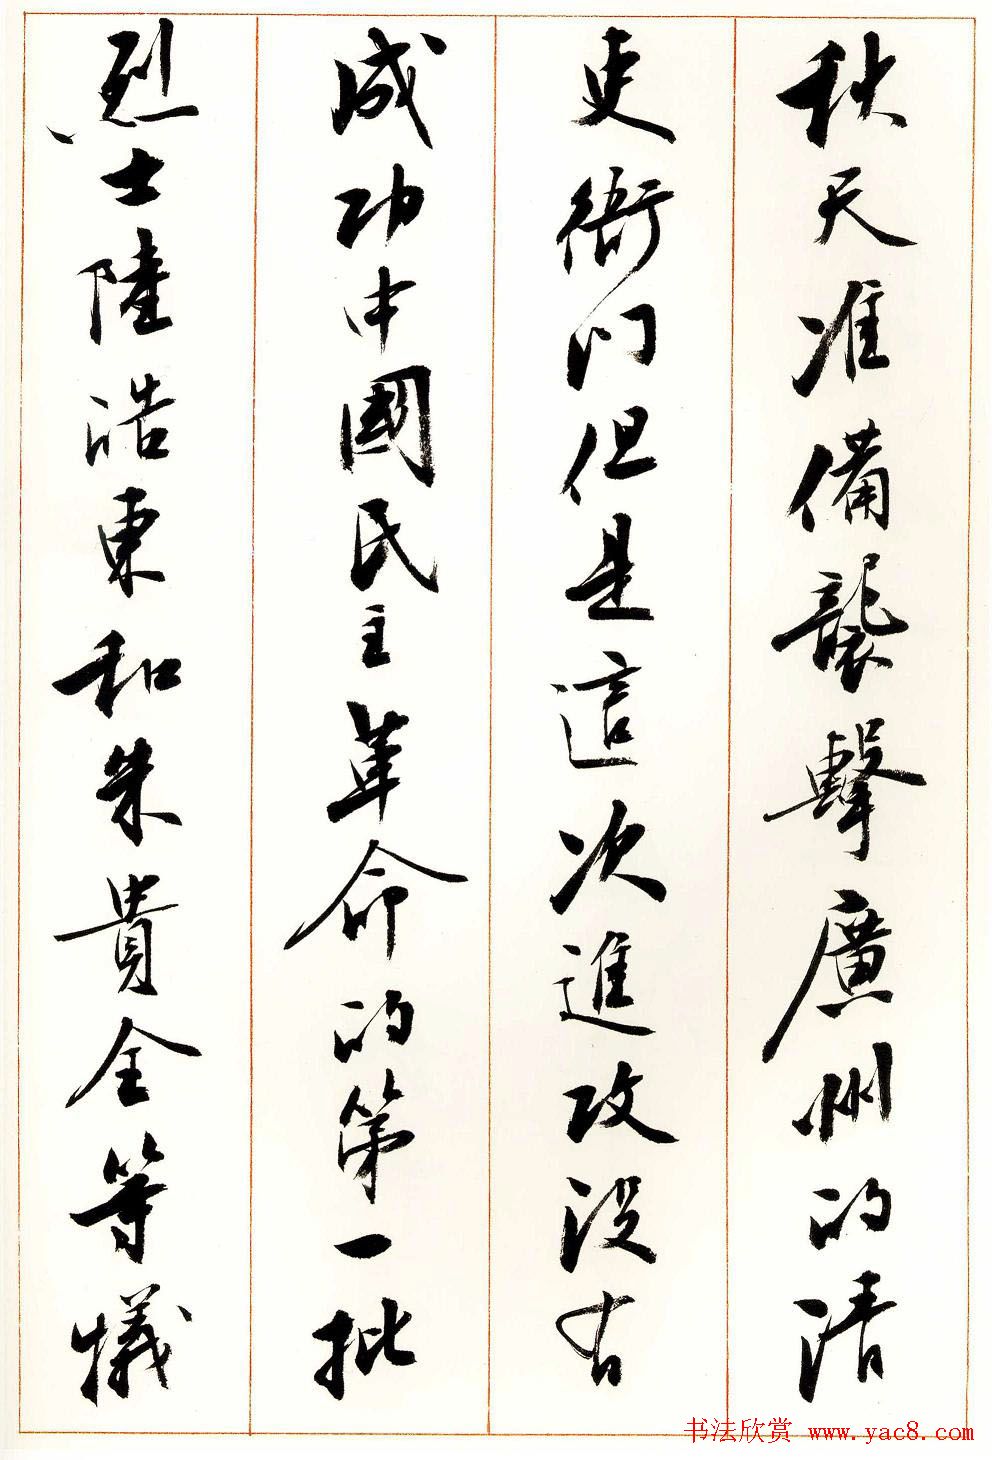 秋天准備襲擊廣州的清
吏衙门但是這次進攻沒有
成功中國民主革命的第一批
烈士陸浩東和朱貴全等犠
书法欣赏 www.yac8.com